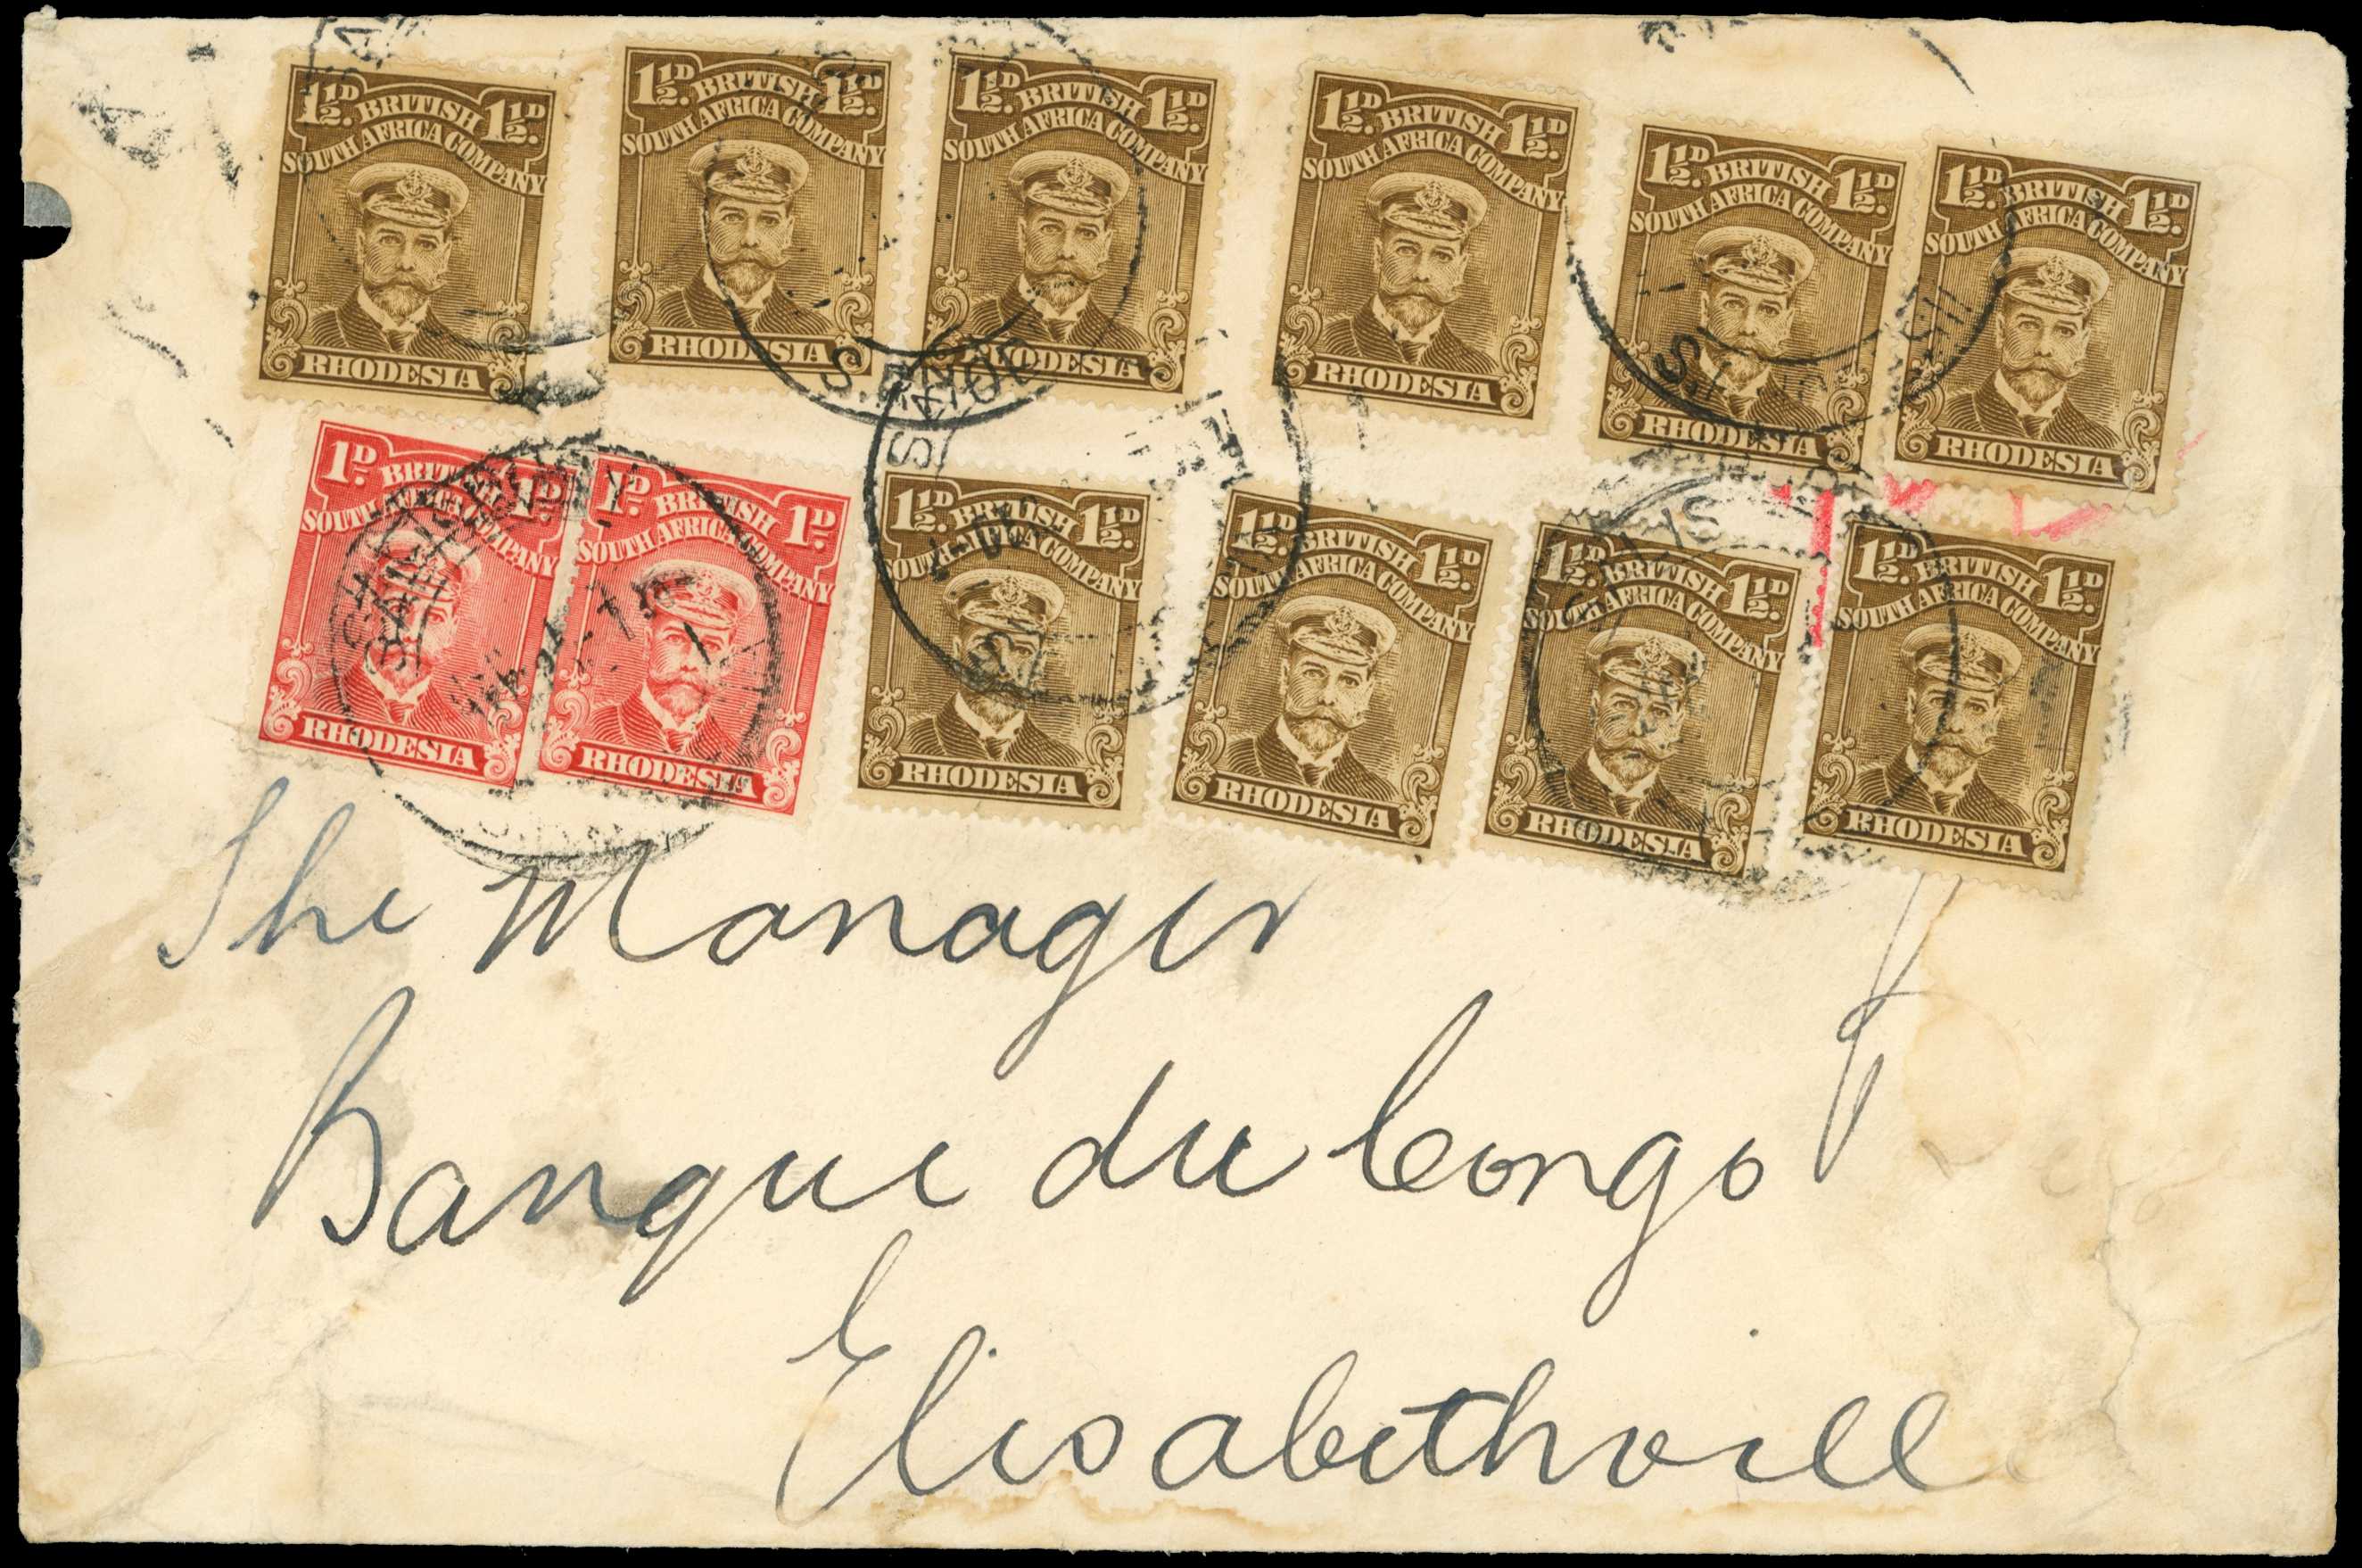 1½D BRITISH 1½D
SOUTH AFRICA COMPANY
RHODESIA
1½D BRITISH 1½D
SOUTH AFRICA COMPANY
RHODESIA
1½D BRITISH 1½D
SOUTH AFRICA COMPANY
RHODESIA
1½D BRITISH 1½D
SOUTH AFRICA COMPANY
RHODESIA
1½D BRITISH 1½D
SOUTH AFRICA COMPANY
RHODESIA
1½D BRITISH 1½D
SOUTH AFRICA COMPANY
RHODESIA
1D BRITISH 1D
SOUTH AFRICA COMPANY
RHODESIA
1D BRITISH 1D
SOUTH AFRICA COMPANY
RHODESIA
1½D BRITISH 1½D
SOUTH AFRICA COMPANY
RHODESIA
1½D BRITISH 1½D
SOUTH AFRICA COMPANY
RHODESIA
1½D BRITISH 1½D
SOUTH AFRICA COMPANY
RHODESIA
1½D BRITISH 1½D
SOUTH AFRICA COMPANY
RHODESIA
The Manager
Banque du Congo
Elisabethvill